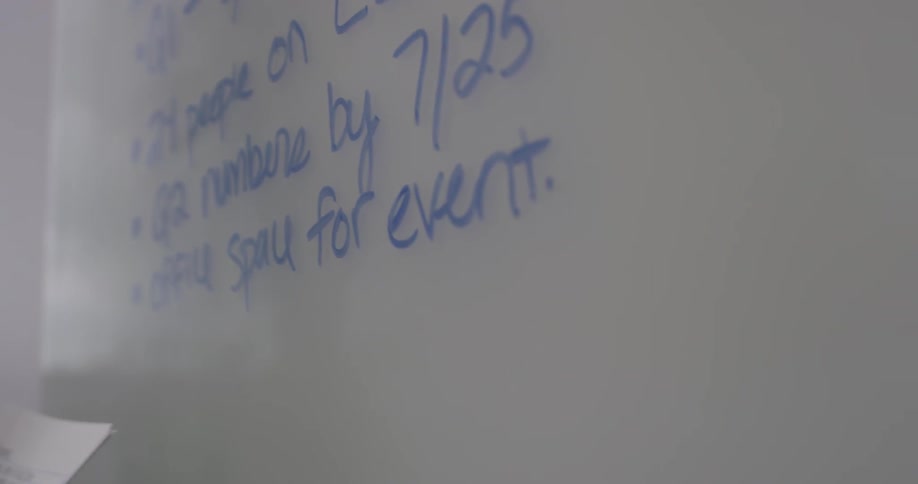 • 24 people on
• Q2 numbers by 7/25
• office space for event.